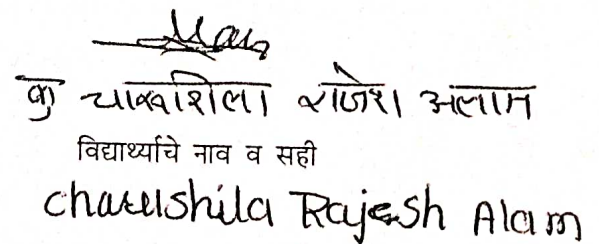 कु चारुशिला राजेश अलाम
विद्यार्थ्याचे नाव व सही
Charushila Rajesh Alam